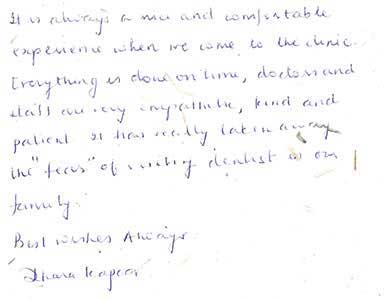 It is always a nice and comfortable
experience when we come to the clinic.
Everything is done on time, doctors and
staff are very empathetic, kind and
patient. It has really taken away
the "fear" of visiting dentist in our
family.
Best wishes Always
Dhara Kapoor